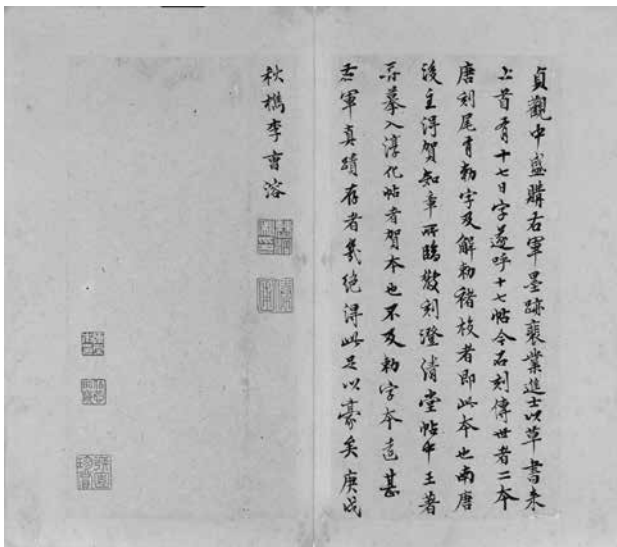 貞觀中盛購右軍墨跡裴業進士以草書來
上首有十七日字遂呼十七帖今石刻傳世者二本
唐刻尾有勅字及解勅褚校者即此本也南唐
後主得賀知章所臨散刻澄清堂帖中王著
募入淳化帖者賀本也不及勅字本遠甚
右軍真蹟存者幾絕得此足以豪矣庚戌
秋檇李曹溶